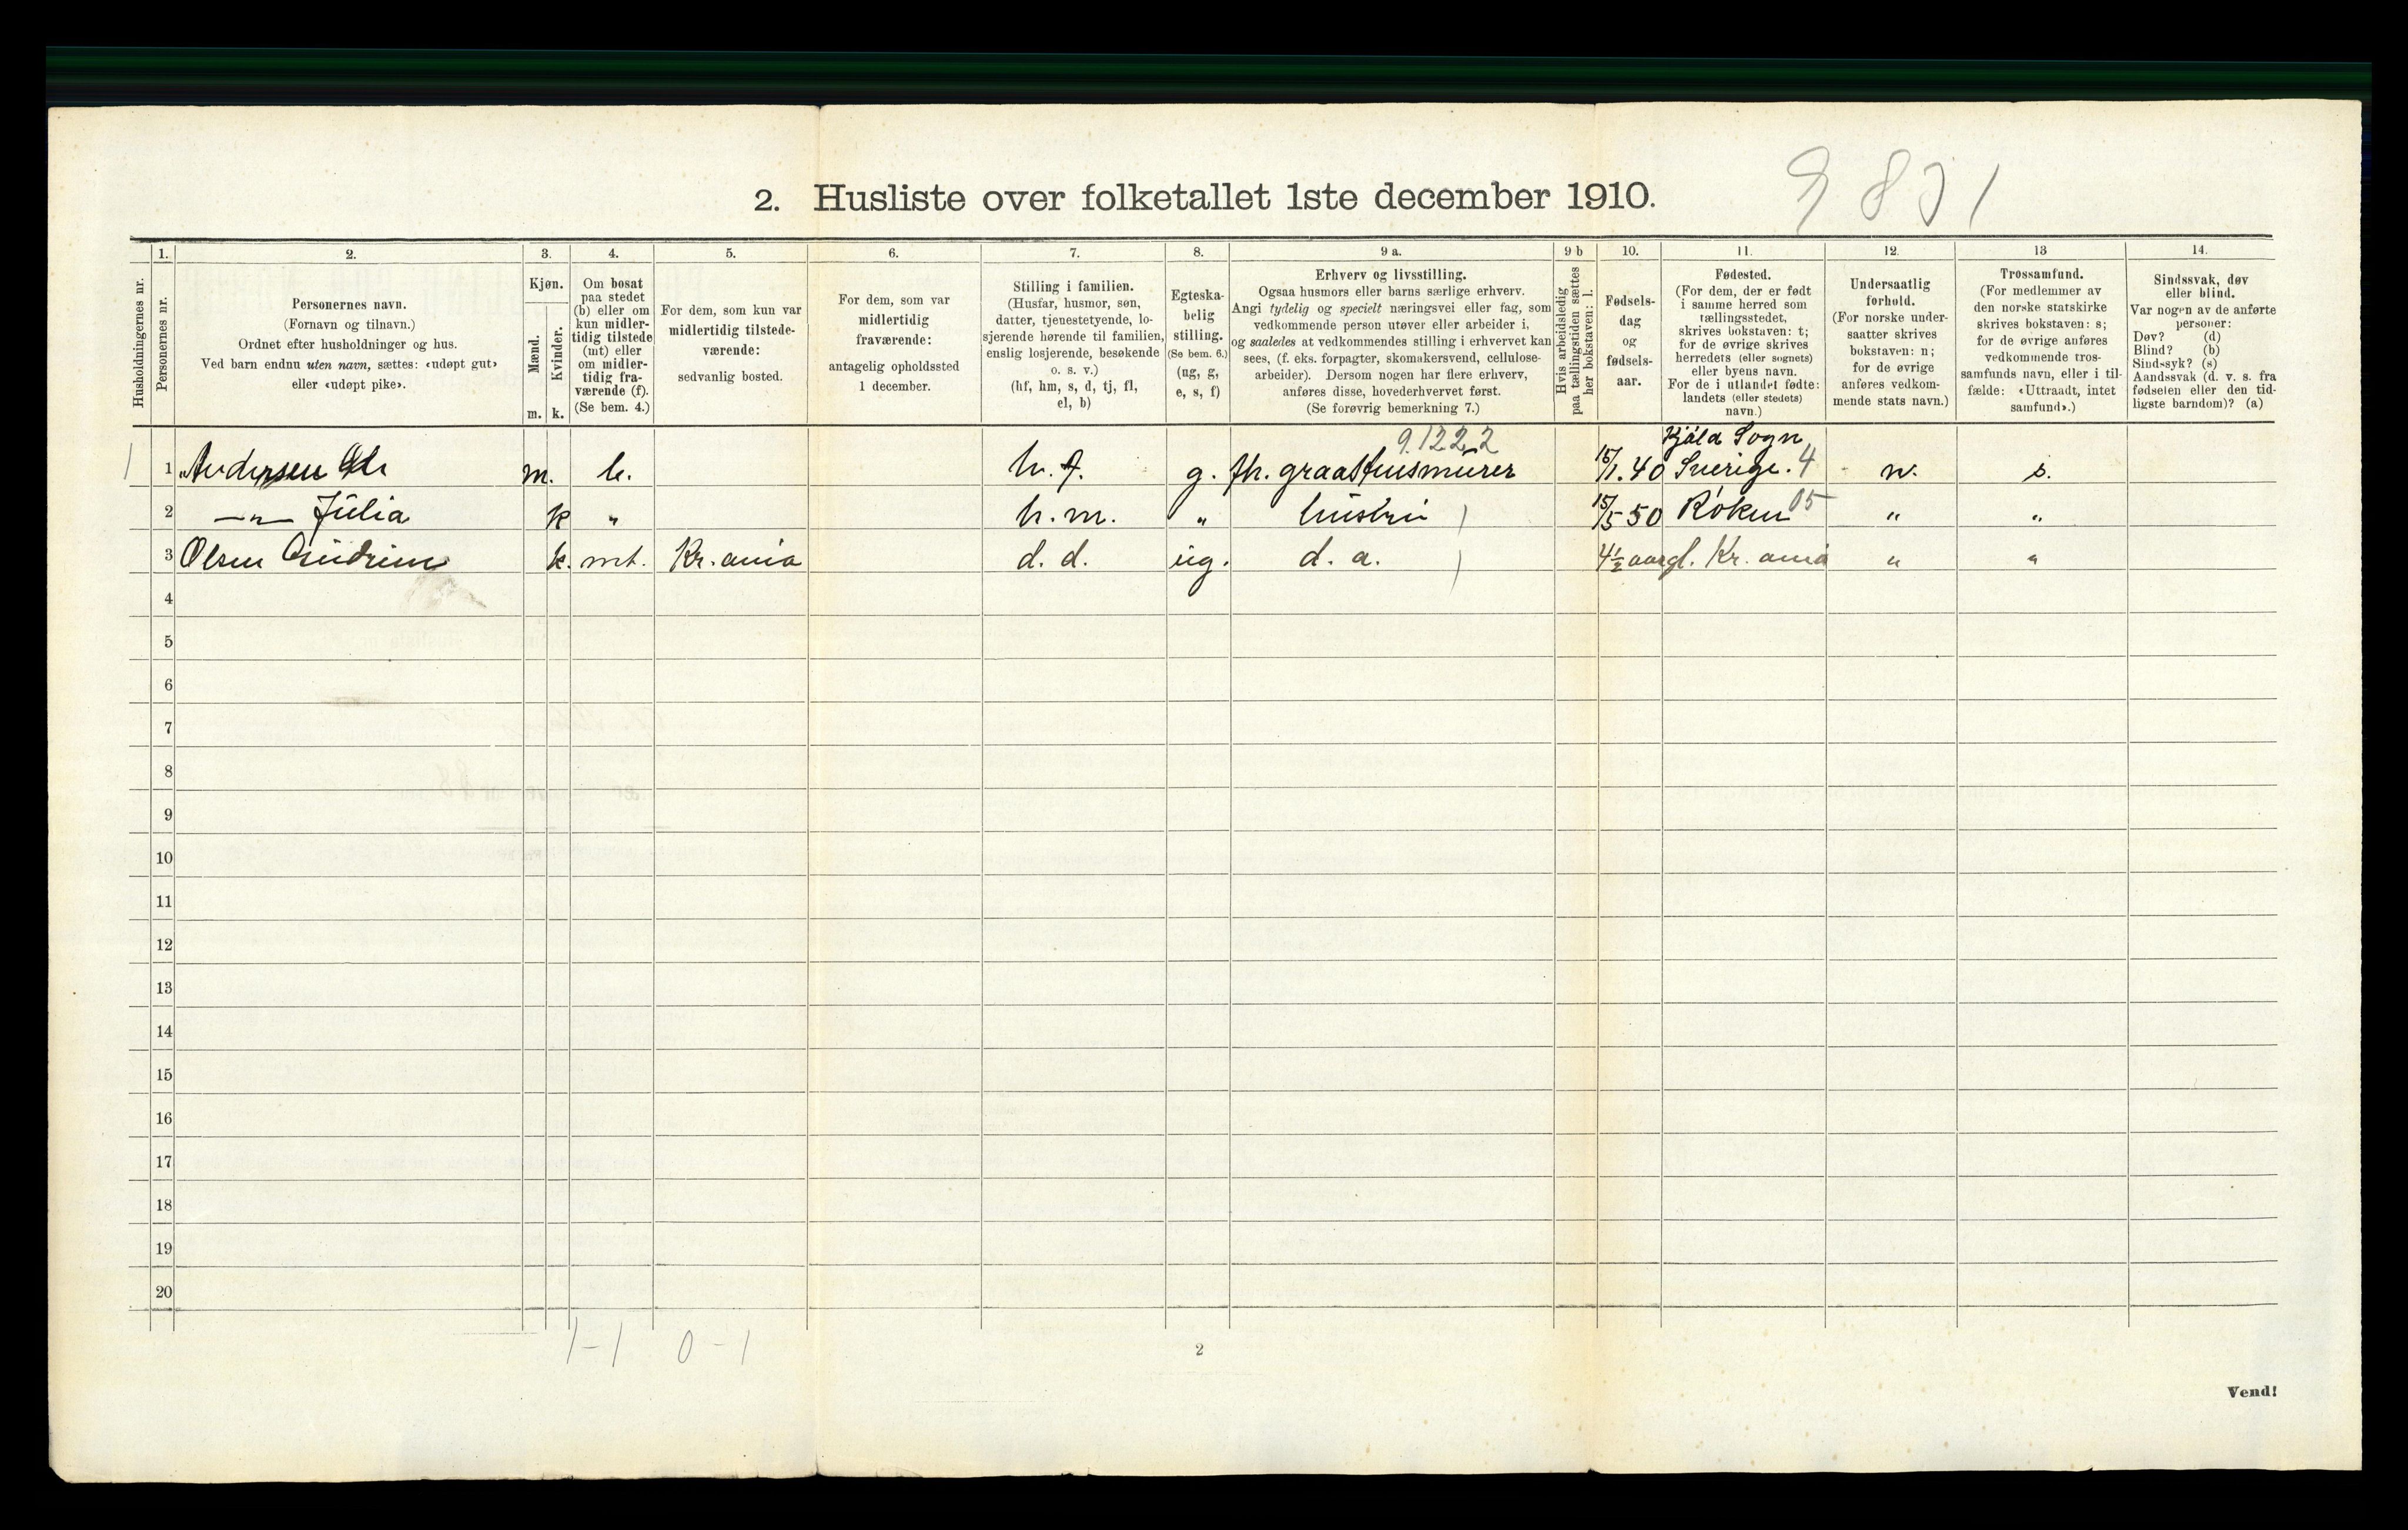 2. Husliste over folketallet 1ste december 1910.
9831
Husholdningernes nr.
1. Personernes nr.
2. Personernes navn.
(Fornavn og tilnavn.)
Ordnet efter husholdninger og hus.
Ved barn endnu uten navn, sættes: «udøpt gut»
eller «udøpt pike».
3. Kjøn.
Mænd. m.
Kvinder. k.
4. Om bosat
paa stedet
(b) eller om
kun midler-
tidig tilstede
(mt) eller
om midler-
tidig fra-
værende (f).
(Se bem. 4.)
5. For dem, som kun var
midlertidig tilstede-
værende:
sedvanlig bosted.
6. For dem, som var
midlertidig
fraværende:
antagelig opholdssted
1 december.
7. Stilling i familien.
(Husfar, husmor, søn,
datter, tjenestetyende, lo-
sjerende hørende til familien,
enslig losjerende, besøkende
o. s. v.)
(hf, hm, s, d, tj, fl,
el, b)
8. Egteska-
belig
stilling.
(Se bem. 6.)
(ug, g,
e, s, f)
9 a. Erhverv og livsstilling.
Ogsaa husmors eller barns særlige erhverv.
Angi tydelig og specielt næringsvei eller fag, som
vedkommende person utøver eller arbeider i,
og saaledes at vedkommendes stilling i erhvervet kan
sees, (f. eks. forpagter, skomakersvend, cellulose-
arbeider). Dersom nogen har flere erhverv,
anføres disse, hovederhvervet først.
(Se forøvrig bemerkning 7.)
9 b Hvis arbeidsledig
paa tællingstiden sættes
her bokstaven: l.
10. Fødsels-
dag
og
fødsels-
aar.
11. Fødested.
(For dem, der er født
i samme herred som
tællingsstedet,
skrives bokstaven: t;
for de øvrige skrives
herredets (eller sognets)
eller byens navn.
For de i utlandet fødte:
landets (eller stedets)
navn.)
12. Undersaatlig
forhold.
(For norske under-
saatter skrives
bokstaven: n;
for de øvrige
anføres vedkom-
mende stats navn.)
13 Trossamfund.
(For medlemmer av
den norske statskirke
skrives bokstaven: s;
for de øvrige anføres
vedkommende tros-
samfunds navn, eller i til-
fælde: «Uttraadt, intet
samfund».)
14. Sindssvak, døv
eller blind.
Var nogen av de anførte
personer:
Døv? (d)
Blind? (b)
Sindssyk? (s)
Aandssvak (d. v. s. fra
fødselen eller den tid-
ligste barndom)? (a)
9.1222 Kjöld Sogn
1 1 Andersen m. b. h. f. g. fh. graastensmurer 15/1.40 Sverige. 4 n. s.
2 —"— Julia k " h. m. " hustru 15/5 50 Röken 05 " "
3 Olsen Gudrun k. mt. Kr. ania d. d. ug. d. a. 4½ aargl. Kr. ania " "
4
5
6
7
8
9
10
11
12
13
14
15
16
17
18
19
20
1-1 0-1
2
Vend!